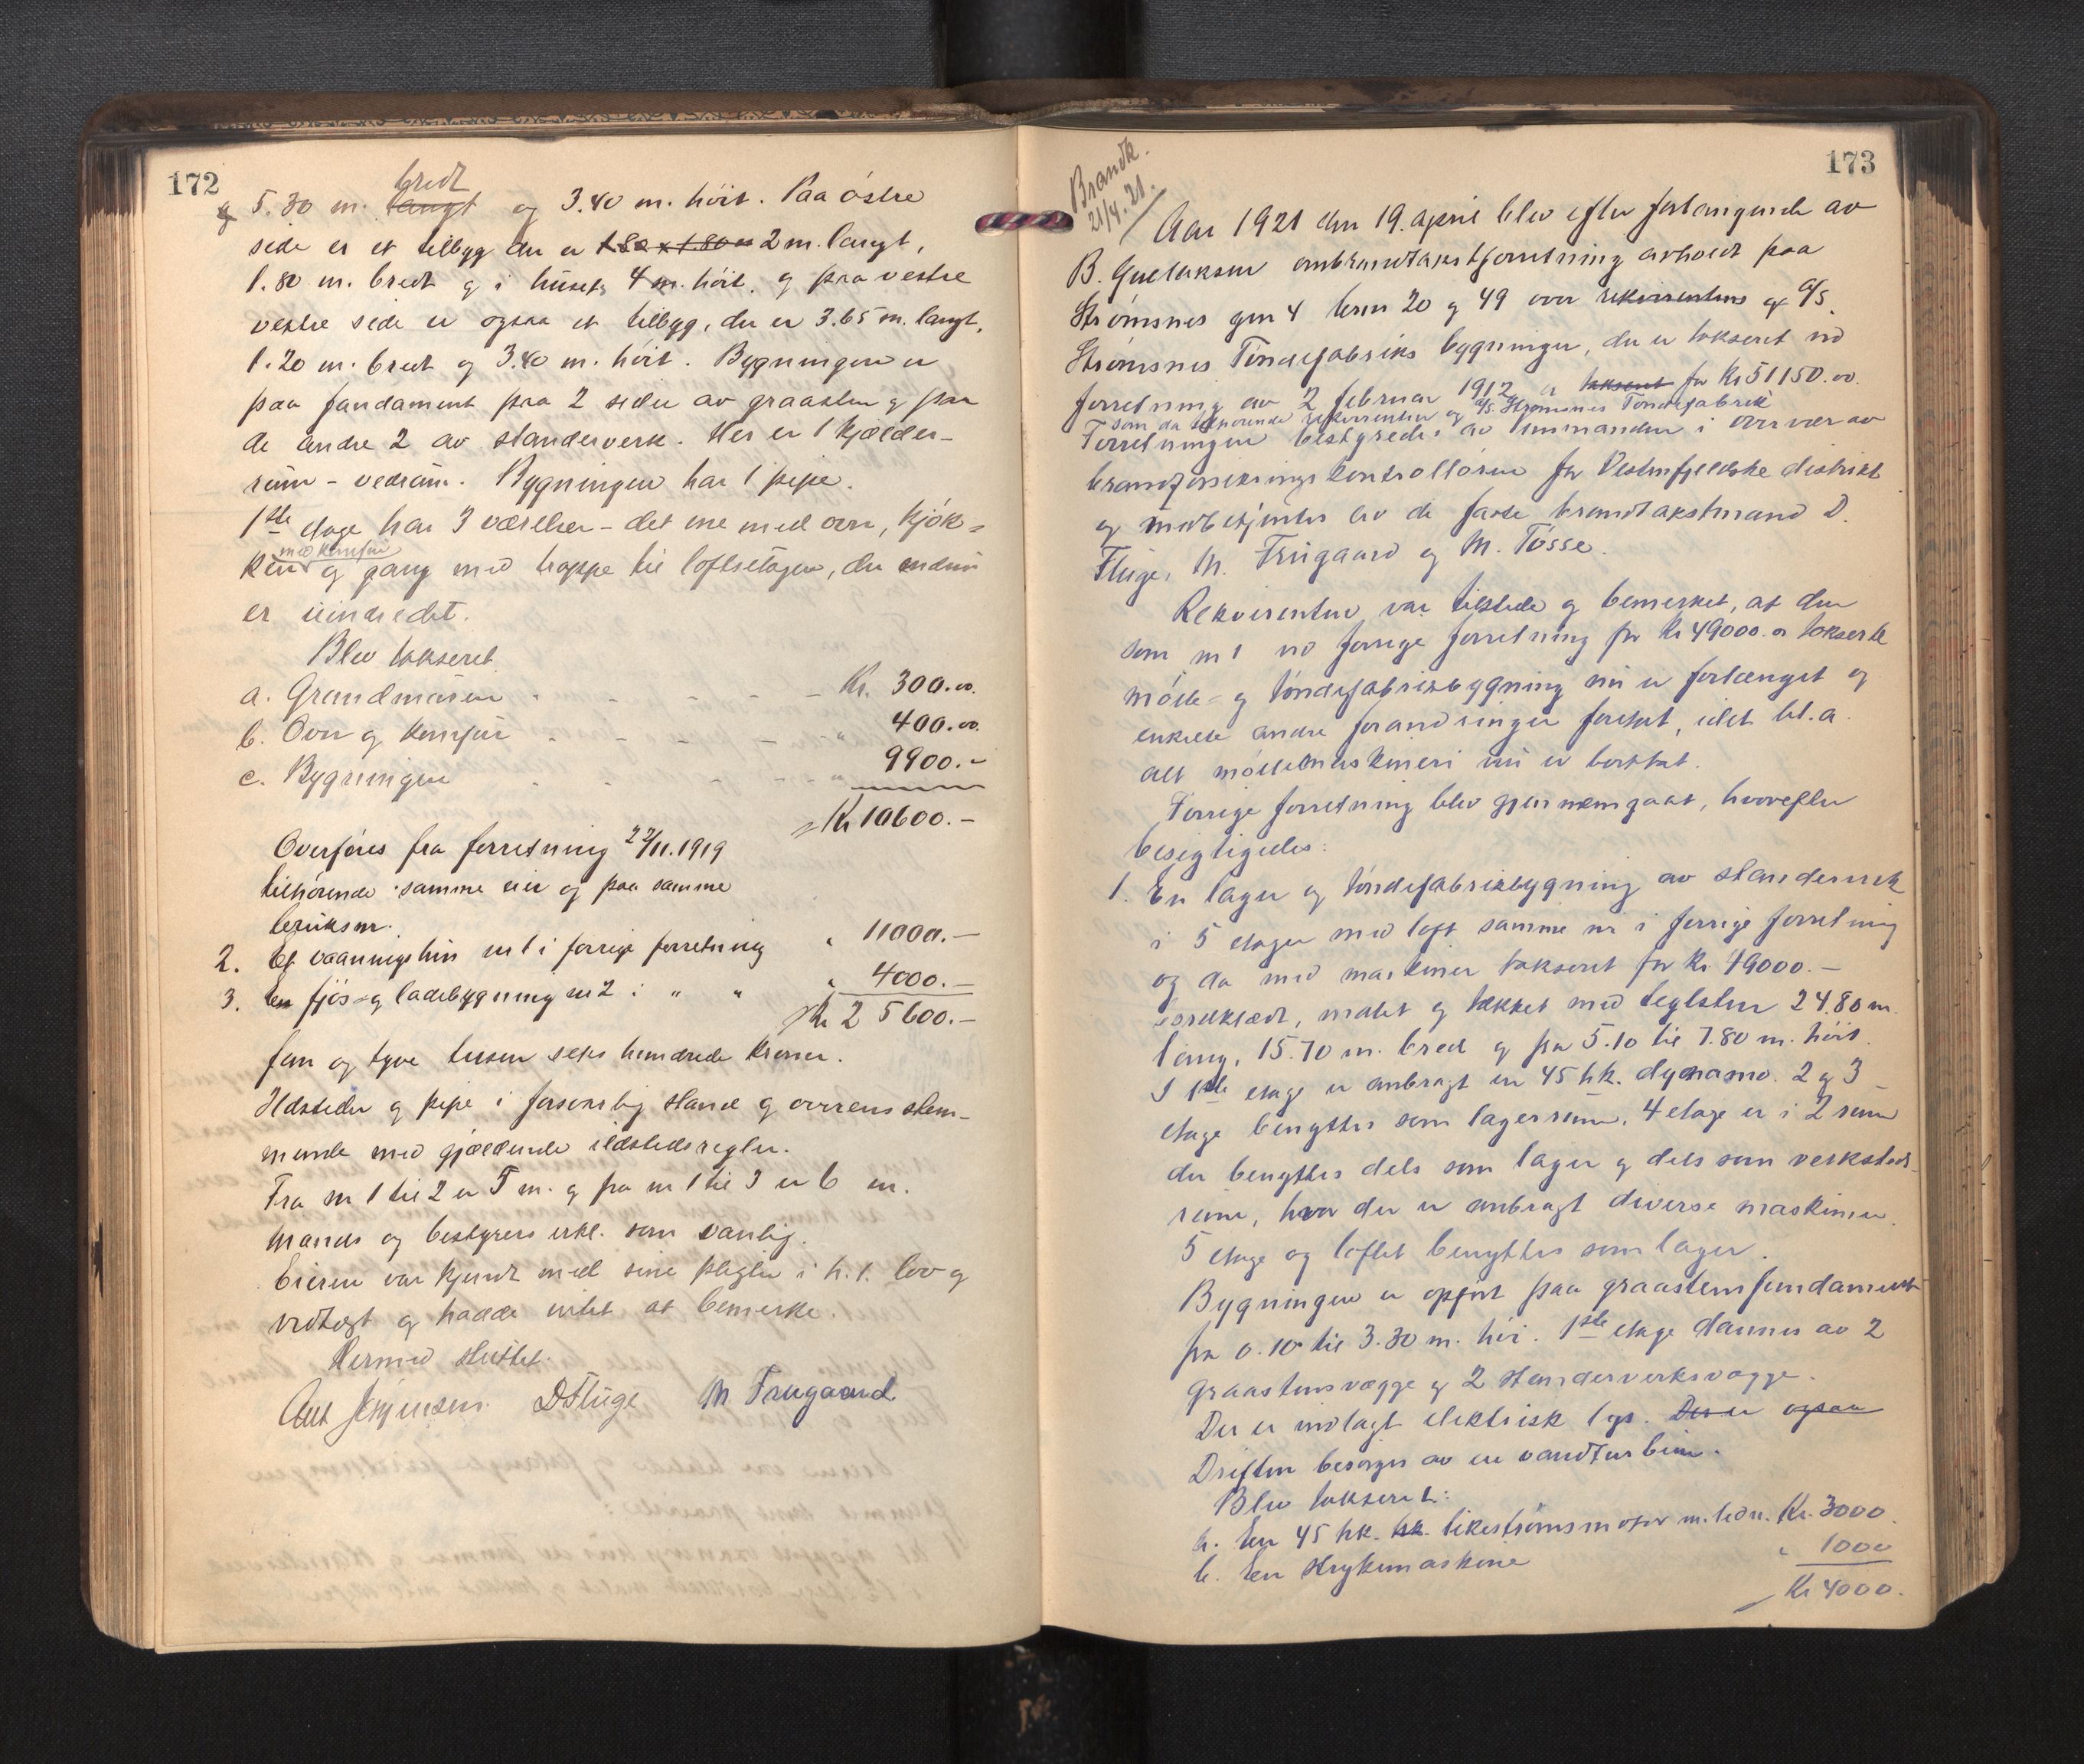 172
bredt
og 5.30 m. langt og 3.40 m. høit. Paa østre
side er et tilbygg der er 1.80 x 1.80 m 2 m. langt,
1.80 m. bredt og i husets 4 m. høit, og paa vestre
vestre side er ogsaa et tilbygg, der er 3.65 m. langt,
1.20 m. bredt og 3.40 m. høit. Bygningen er
paa fundament paa 2 sider av graasten og paa
de andre 2 av standerverk. Her er 1 kjælder-
rum - vedrum. Bygningen har 1 pipe.
1ste etage har 3 værelser - det ene med ovn, kjøk-
med komfur
ken og gang med trappe til loftsetagen, der endnu
er uindredet.
Blev takseret
a. Grundmuren - - - - - Kr. 300.00.
b. Ovn og komfur - - - - " 400.00.
c. Bygningen - - - - " 9900.-
Kr 10600.-
Overføres fra forretning 22/11.1919
tilhørende samme eier og paa samme
bruksnr.
2. Et vaaningshus nr 1 i forrige forretning " 11000.-
3. En fjøs og ladebygning nr 2 i " " " 4000.-
Kr 25600.-
fem og tyve tusen seks hundrede kroner.
Ildsteder og pipe i forsvarlig stand og overensstem-
mende med gjældende ildstedsregler.
Fra nr 1 til 2 er 5 m. og fra nr 1 til 3 er 6 m.
Mænds og bestyrers erkl. som vanlig.
Eieren var kjendt med sine pligter i h.t. lov og
vedtægt og hadde intet at bemerke.
Hermed sluttet.
Ant Jørgensen. D Fluge M Frugaard.
173
Brandk.
21/4.21.
Aar 1921 den 19. april blev efter forlangende av
B. Gullaksen ombrandtakstforretning avholdt paa
Strømsnes gnr 4 brnr 20 og 49 over rekvirentens og A/S.
Strømsnes Tøndefabriks bygninger, der er takseret ved
forretning av 2 februar 1912 a takseret for Kr 51150.00.
som da tilhørende rekvirenten og A/S. Strømsnes Tøndefabrik
Forretningen bestyredes av lensmanden i overvær av
brandforsikringskontrolløren for Vestenfjeldske distrikt
og medbetjentes av de faste brandtakstmænd D.
Fluge, M. Frugaard og M. Tøsse.
Rekvirenten var tilstede og bemerket, at den
som nr 1 ved forrige forretning for Kr 49000.00 takserte
mølle- og tøndefabrikbygning nu er forlænget og
enkelte andre forandringer foretat, idet bl.a.
alt møllemaskineri nu er borttat.
Forrige forretning blev gjennemgaat, hvorefter
besigtigedes:
1. En lager og tøndefabrikbygning av standerverk
i 5 etager med loft samme nr i forrige forretning
og da med maskiner takseret for Kr 49000.-
bordklædt, malet og tækket med teglsten 24.80 m.
lang, 15.70 m. bred og fra 5.10 til 7.80 m. høit.
I 1ste etage er anbragt en 45 hk. dynamo. 2 og 3
etage benyttes som lagerrum, 4 etage er i 2 rum
der benyttes dels som lager og dels som verksteds-
rum, hvor der er anbragt diverse maskiner.
5 etage og loftet benyttes som lager.
Bygningen er opført paa graastensfundament
fra 0.10 til 3.30 m. høi. 1ste etage dannes av 2
graastensvægge og 2 standerverksvægge.
Der er indlagt elektrisk lys. Der er ogsaa
Driften besørges av en vandturbin.
Blev takseret:
a. En 45 hk. hk. likestrømsmotor m. ledn. Kr. 3000.
b. En strykemaskine " 1000
Kr 4000.